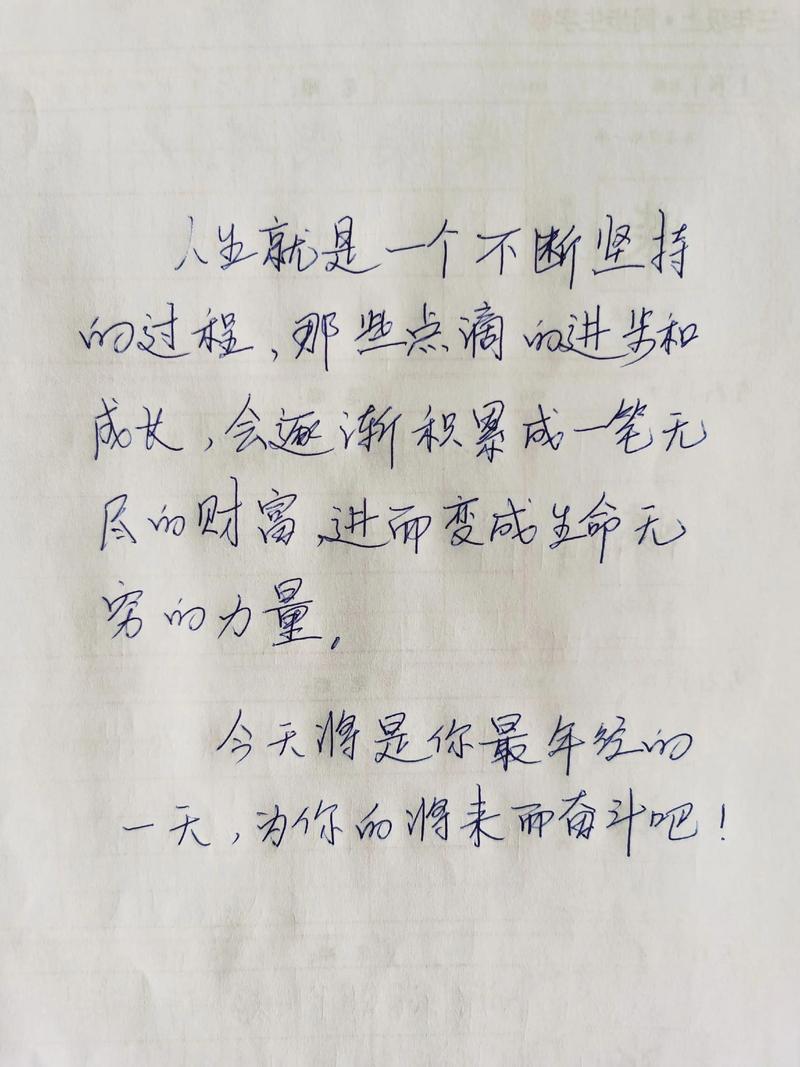 人生就是一个不断坚持
的过程,那些点滴的进步和
成长,会逐渐积累成一笔无
尽的财富,进而变成生命无
穷的力量。
今天将是你最年经的
一天,为你的将来而奋斗吧!